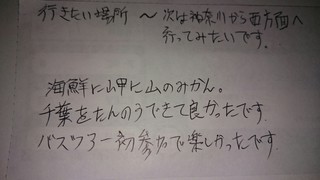 行きたい場所 ～ 次は神奈川から西方面へ
行ってみたいです。
海鮮に岬に山のみかん。
千葉をたんのうできて良かったです
バスツアー初参加で楽しかったです